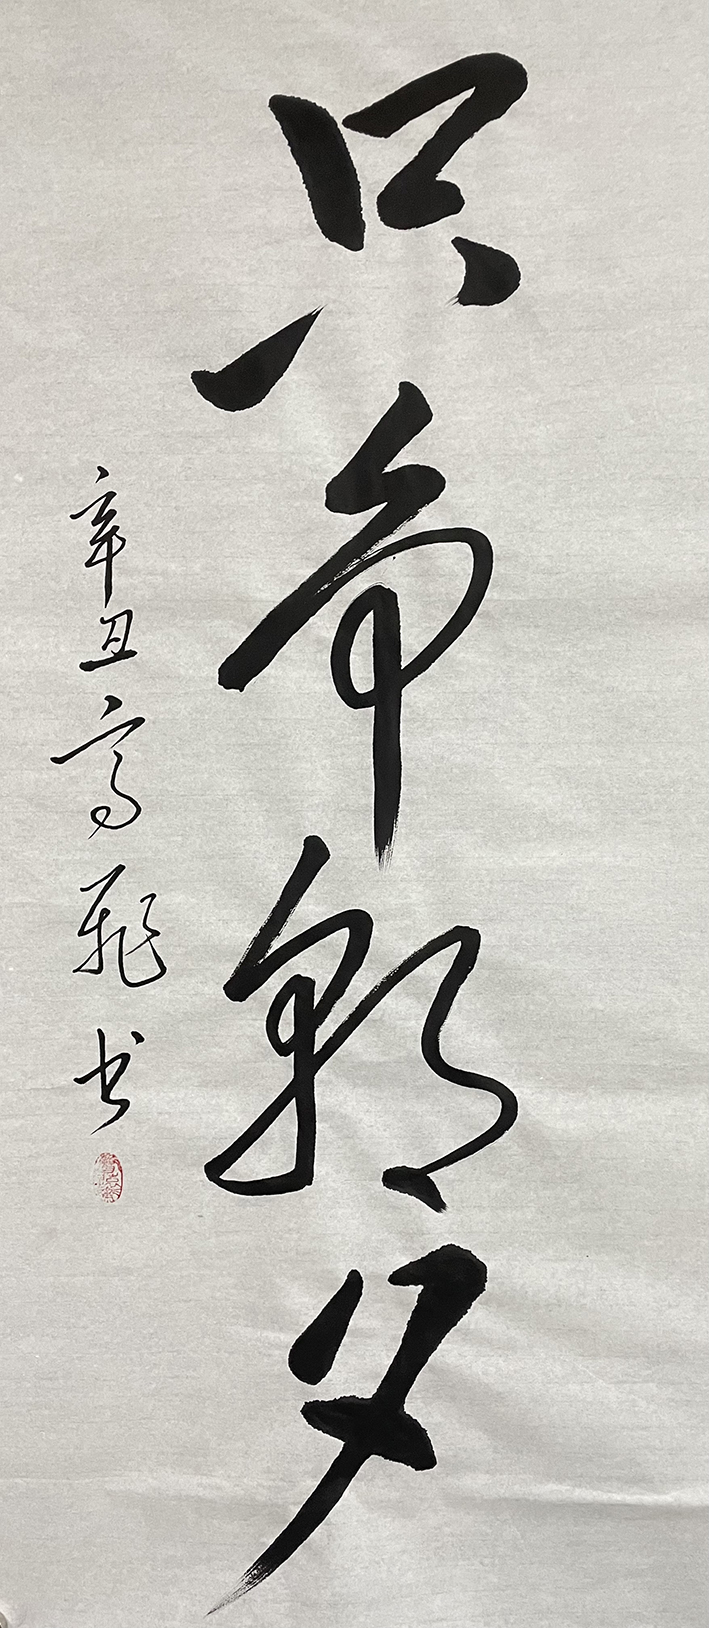 只争朝夕
辛丑高飛书